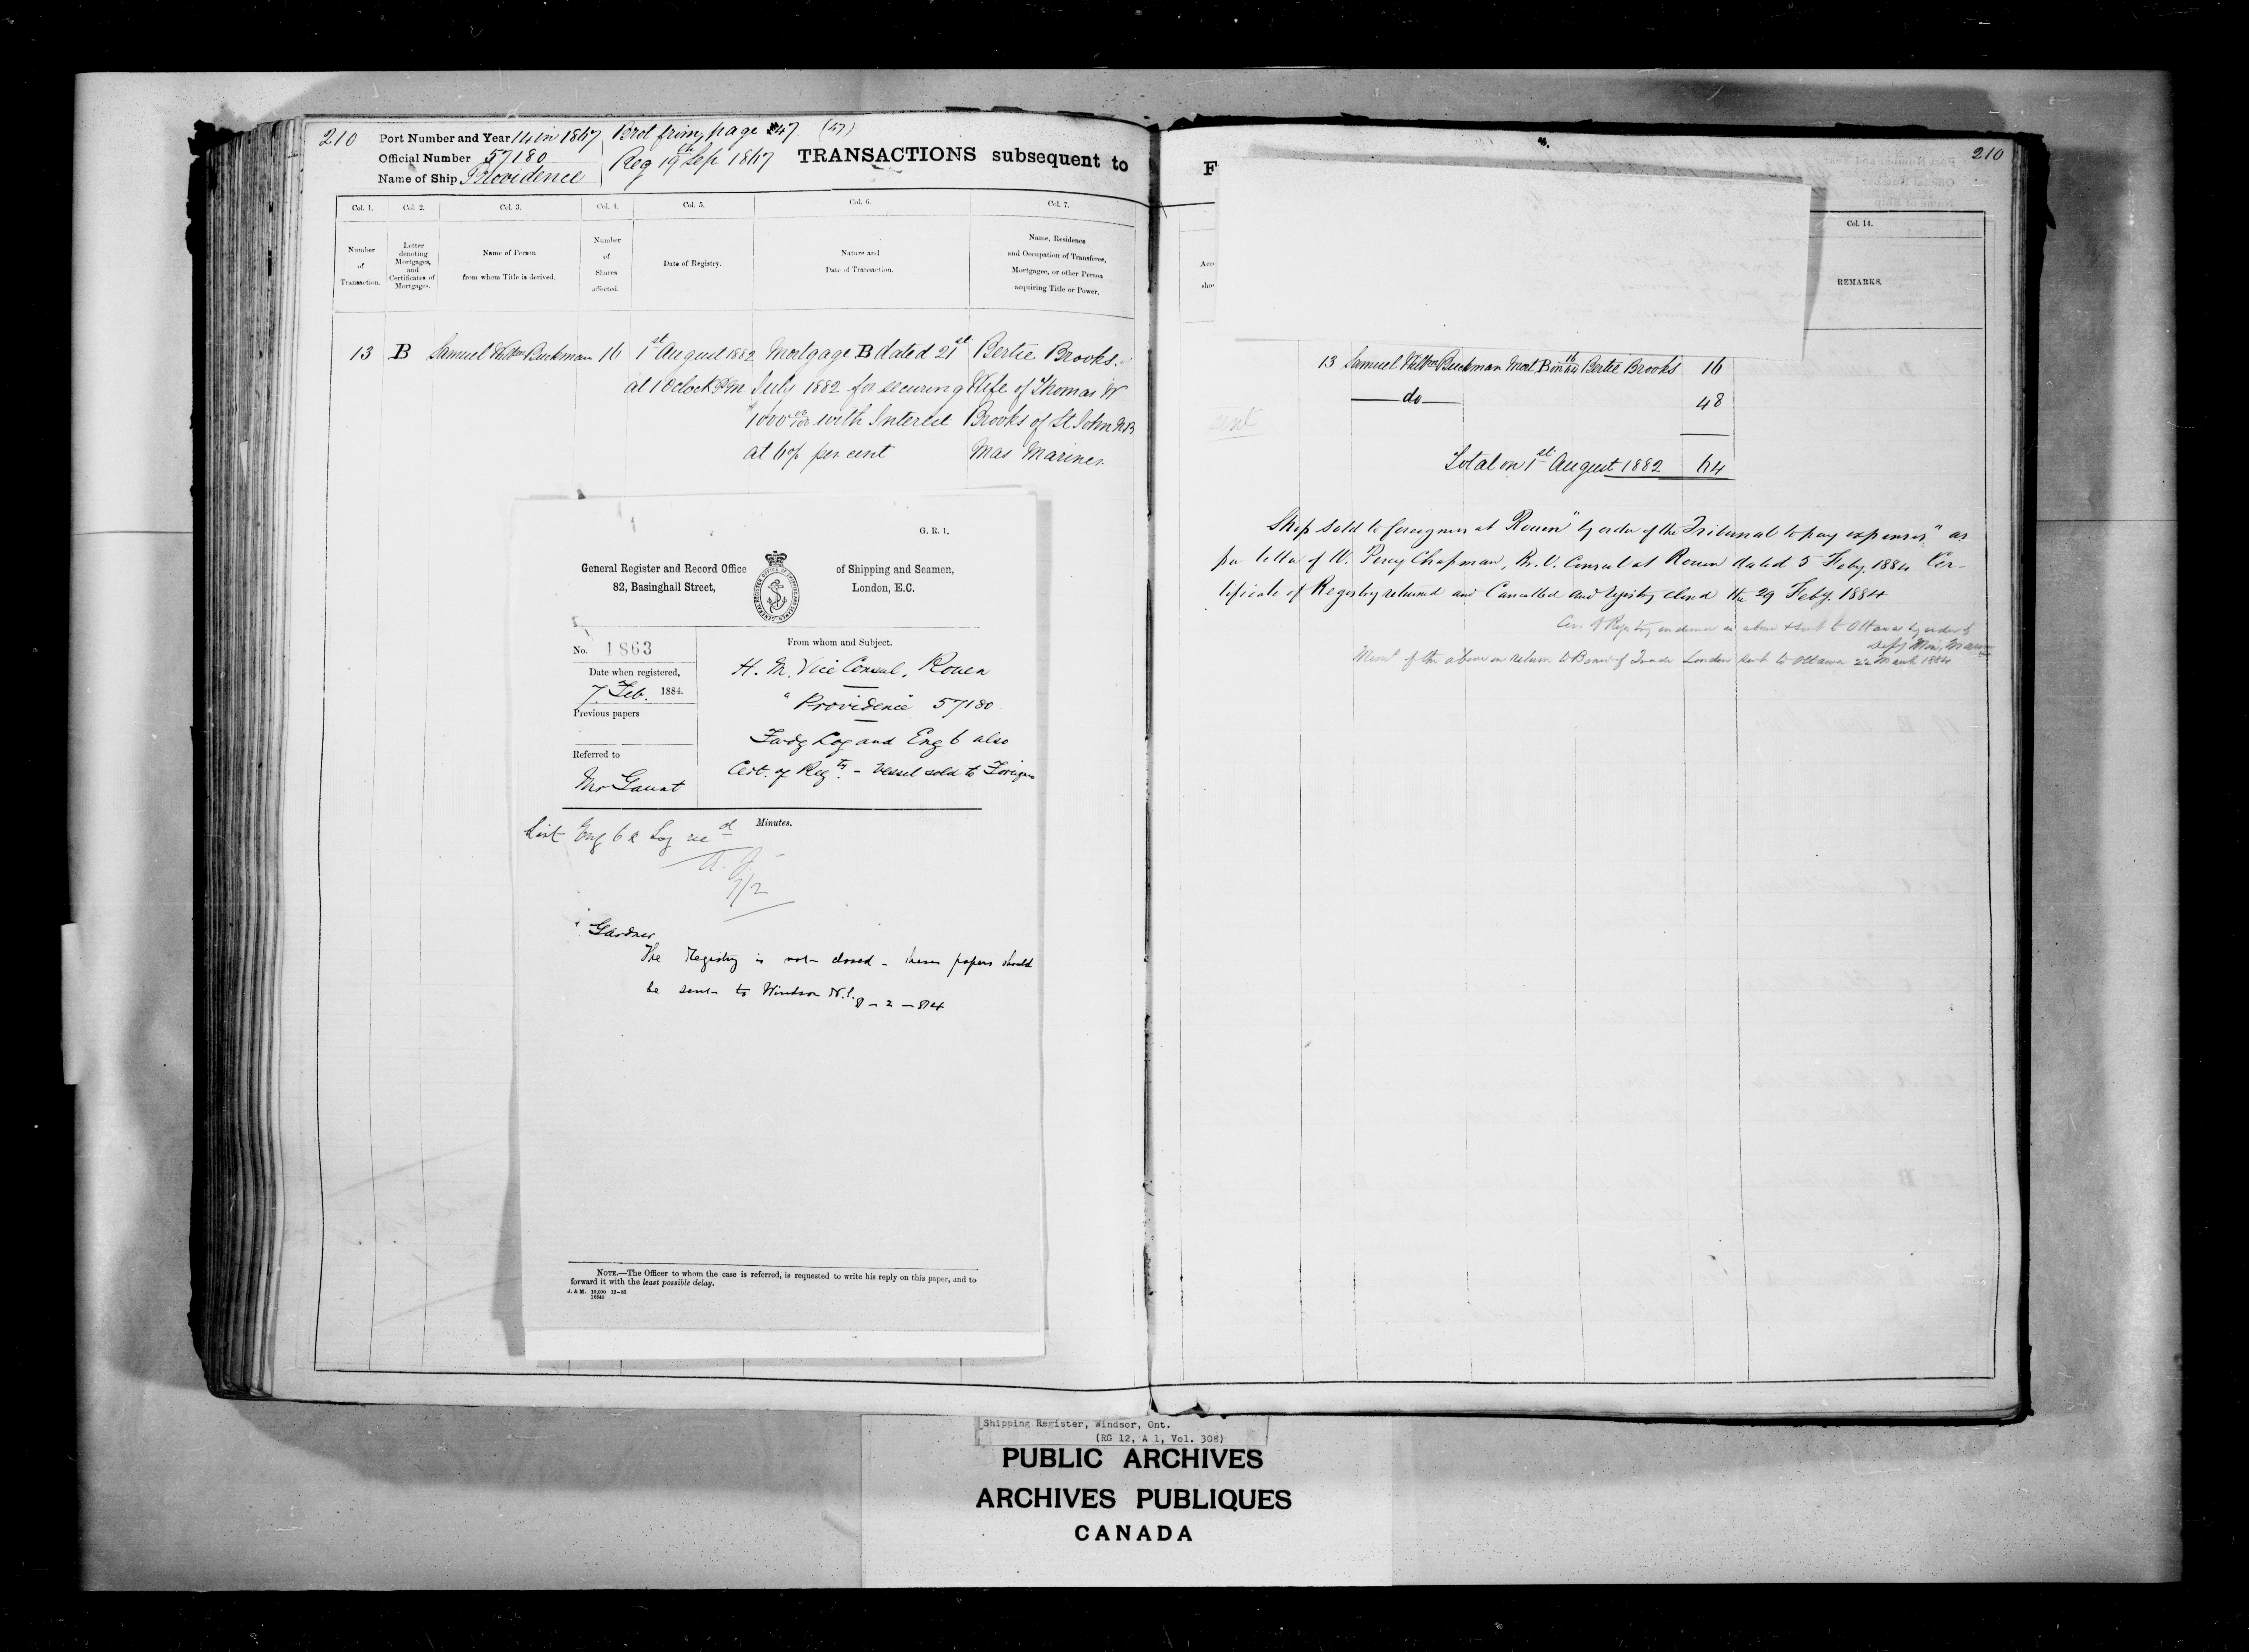 210
Port Number and Year 14 in 1867
Brot from page 47. (47)
Official Number 57180
Reg 19th Sep 1867
Name of Ship Providence
TRANSACTIONS subsequent to
Col. 1.
Col. 2.
Col. 3.
Col. 4.
Col. 5.
Col. 6.
Col. 7.
Number of Transaction.
Letter denoting Mortgages, and Certificates of Mortgages.
Name of Person from whom Title is derived.
Number of Shares affected.
Date of Registry.
Nature and Date of Transaction.
Name, Residence and Occupation of Transferee, Mortgagee, or other Person acquiring Title or Power.
13 B Samuel Buckman 16 1st August 1882 Mortgage B dated 21st Bertie Brooks.
at 1 Oclock PM July 1882 for securing Wife of Thomas W
$1000 00/100 with Interest Brooks of St John NB
at 6 % per cent Mas Mariner
G. R. 1.
General Register and Record Office of Shipping and Seamen,
82, Basinghall Street, London, E.C.
No. 1863
From whom and Subject.
Date when registered,
7 Feb. 1884.
H. M. Vice Consul, Rouen
"Providence" 57180
Previous papers
Fwdg Log and Eng 6 also
Referred to
Cert. of Regty. - Vessel sold to Foreigners
Mr Gaunt
Minutes.
List Eng 6 & Log recd
7/2
Gardner
The Registry is not closed - these papers should
be sent to Windsor N.S.
8-2-84
NOTE.—The Officer to whom the case is referred, is requested to write his reply on this paper, and to
forward it with the least possible delay.
J. & M. 10,000 12-83
F
210
Col. 14.
REMARKS.
13 Samuel Buckman Mort B on 16/64 Bertie Brooks 16
do 48
sent
Total on 1st August 1882 64
Ship sold to foreigners at Rouen "by order of the Tribunal to pay expenses" as
per letter of W. Percy Chapman, B. V. Consul at Rouen dated 5 Feby. 1884 Cer-
tificate of Registry returned and Cancelled and registry closed the 29 Feby. 1884
Cer. of Registry endorsed as above & sent to Ottawa by order of
Depy Min. Marine
Memo of the above on Return to Board of Trade London sent to Ottawa 22 March 1884
Shipping Register, Windsor, Ont.
(RG 12, A 1, Vol. 308)
PUBLIC ARCHIVES
ARCHIVES PUBLIQUES
CANADA